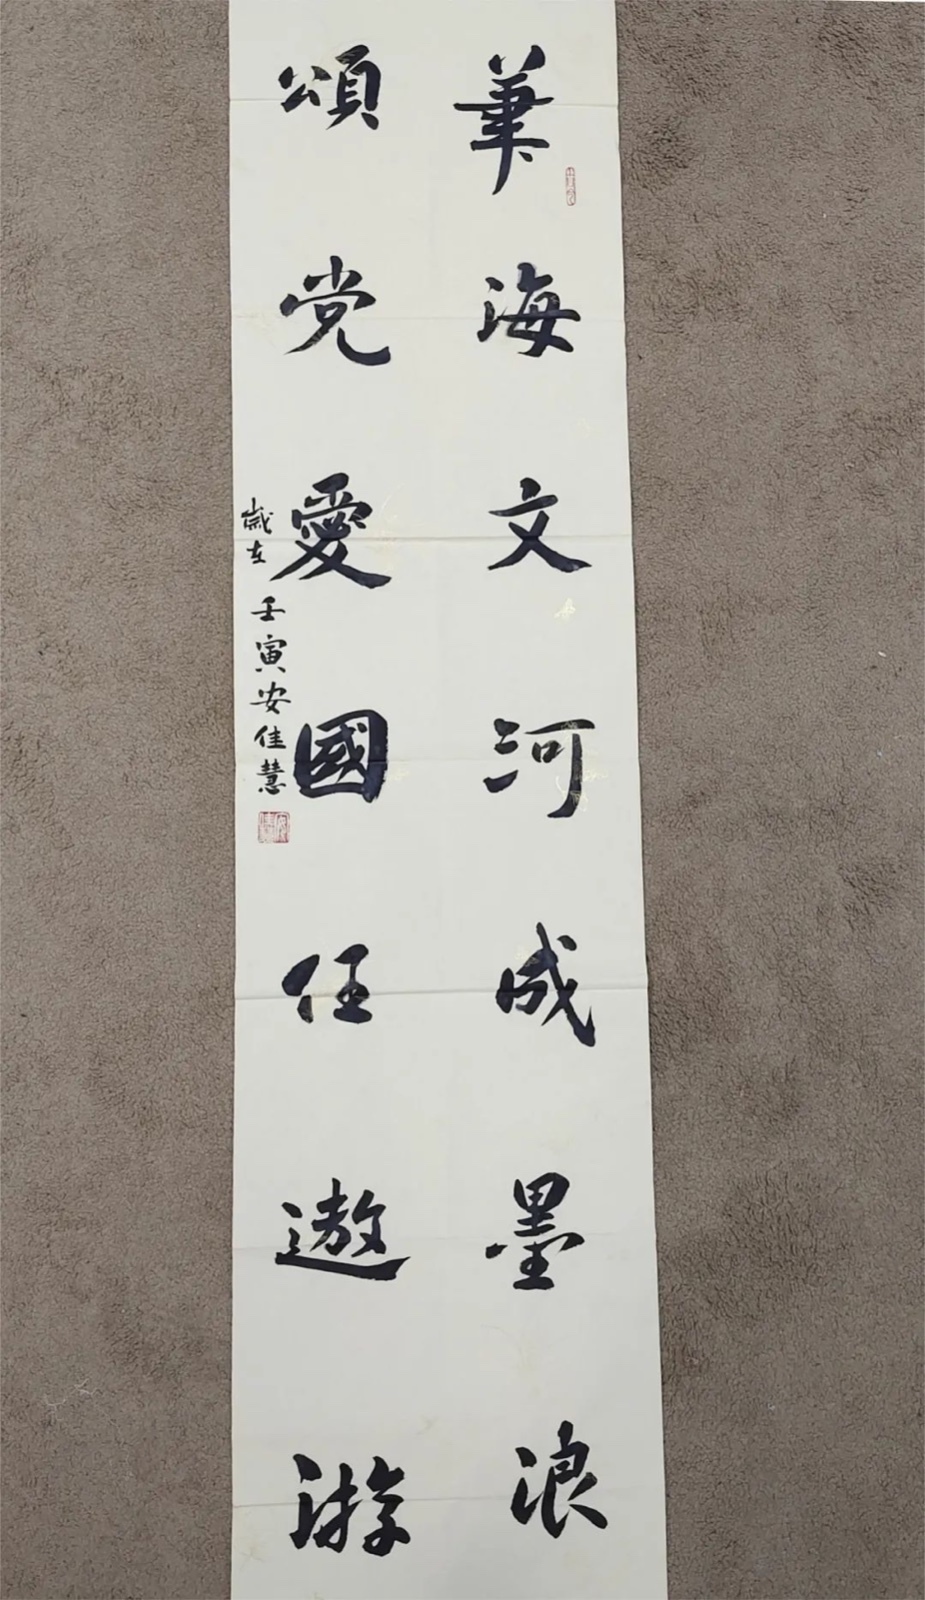 筆海文河成墨浪
頌党愛國任遨游
歲在壬寅安佳慧